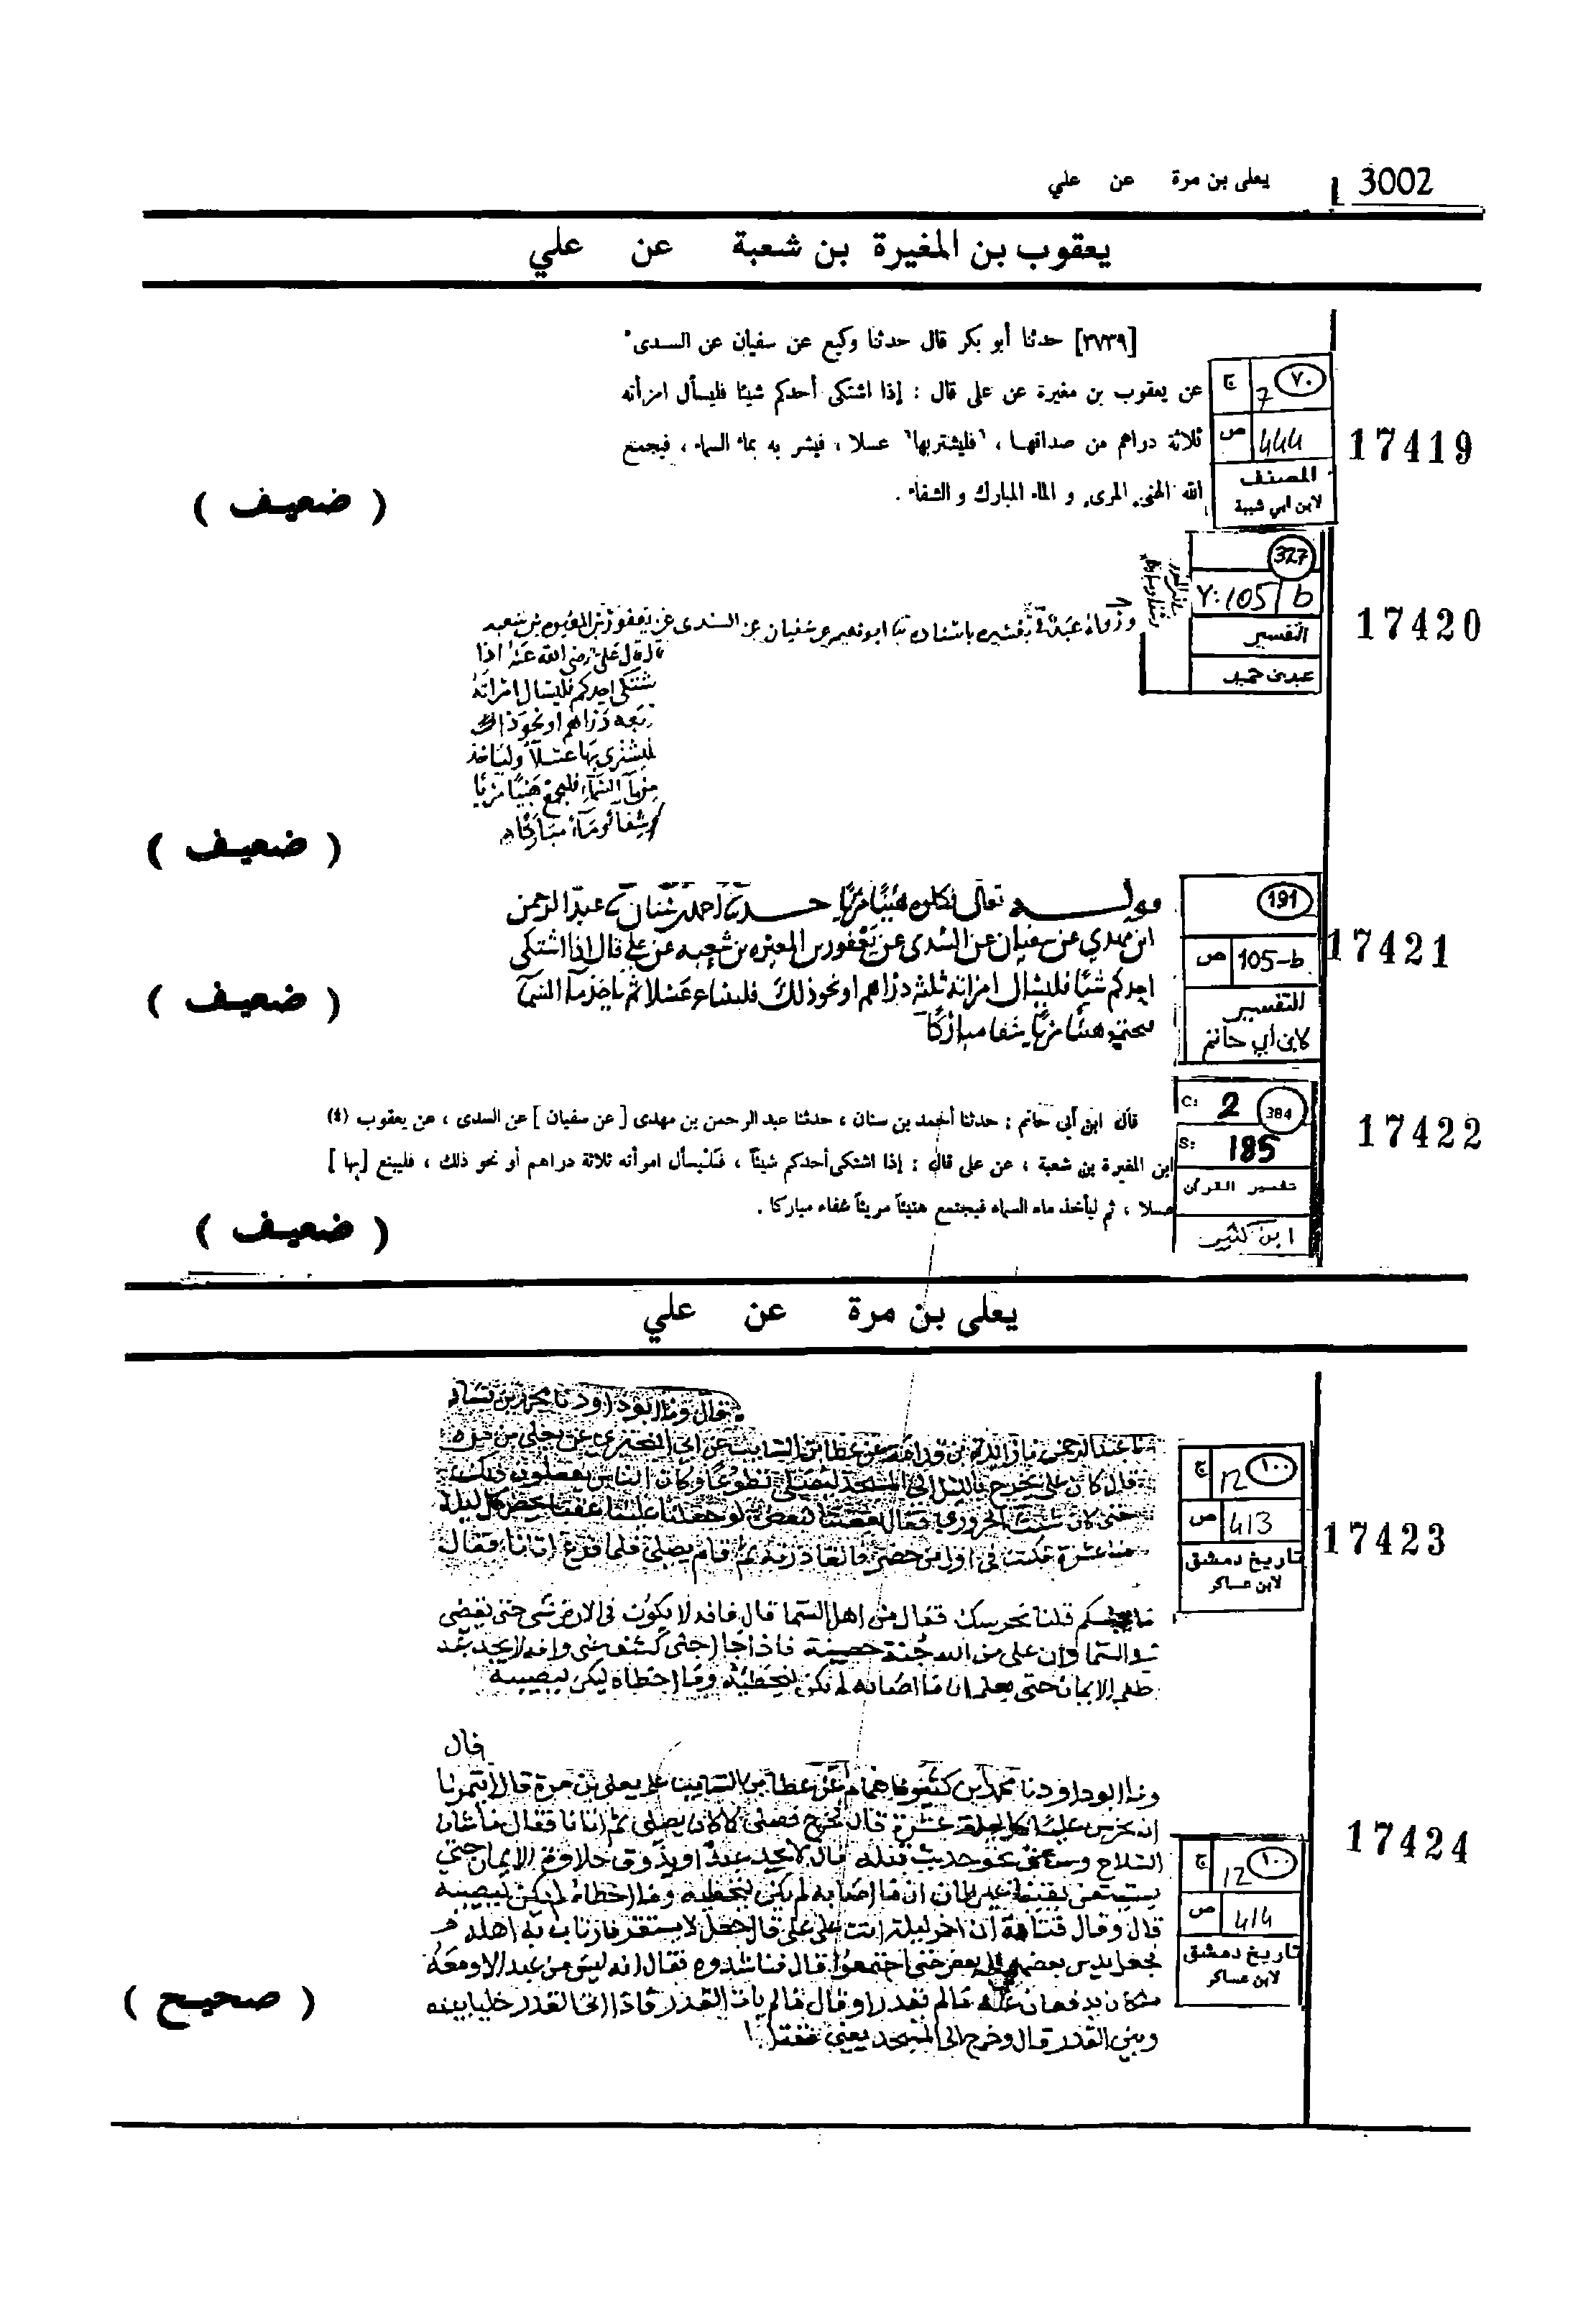 3002 يعلى بن مرة عن علي
يعقوب بن المغيرة بن شعبة عن علي
[٣٧٣٩] حدثنا أبو بكر قال حدثنا وكيع عن سفيان عن السدى
عن يعقوب بن مغيرة عن على قال : إذا اشتكى أحدكم شيئا فليسأل امرأته
ثلاثة دراهم من صداقها ، فليشتر بها عسلا ، فيشربه بماء السماء ، فيجمع
الله الهنىء المرىء و الماء المبارك و الشفاء .
ج 7 ٧٠
ص 444
المصنف
لابن ابي شيبة
17419
( ضعيف )
327
Y: 105/b
التفسير
عبد بن حميد
17420
عن السندى عن يعقوب بن المغيرة بن شعبه
قال قال على رضى الله عنه اذا
يشتكى احدكم فليسال امراته
دراهم او نحو ذلك
فليشترى بها عسلا ولياخذ
من مآ السمآء فليجمع هنيا مريا
وشفآ ومآء مباركا
( ضعيف )
تعالى فكلوه هنيئا مريا حدثنا احمد بن سنان ثنا عبد الرحمن
ابن مهدي عن سفيان عن السدى عن يعقوب بن المغيره بن شعبه عن علي قال اذا اشتكى
احدكم شيئا فليسال امراته ثلثه دراهم او نحو ذلك فليبتاع عسلا ثم ياخذ مآ السمآ
هنئا مريا شفا مباركا
191
ص 105-b
التفسير
لابن أبي حاتم
17421
( ضعيف )
قال ابن أبي حاتم : حدثنا أحمد بن سنان ، حدثنا عبد الرحمن بن مهدى [ عن سفيان ] عن السدى ، عن يعقوب (٤)
ابن المغيرة بن شعبة ، عن على قال : إذا اشتكى أحدكم شيئاً ، فليسأل امرأته ثلاثة دراهم أو نحو ذلك ، فليبتع [ بها ]
عسلا ، ثم ليأخذ ماء السماء فيجتمع هنيئاً مريئاً شفاء مباركا .
C: 2 384
S: 185
تفسير القرآن
ابن كثير
17422
( ضعيف )
يعلى بن مرة عن علي
قال ونا ابو داود نا محمد بن
نا عبد الرحمن نا زائدة بن قدامة عن عطا بن السايب عن ابي البختري عن يعلى بن مره
قال كان علي يخرج بالليل الى المسجد ليصلي تطوعا وكان الناس يفعلون ذلك
حتى كان شبث الحروري فقال بعضنا لبعض لو جعلنا علينا عقبا يحضر كل ليلة
منا عشرة فكنت في اول من حضر فالقا درته ثم قام يصلي فلما فرغ اتانا فقال
ما يجلسكم قلنا نحرسك فقال من اهل السما قال فانه لا يكون في الارض شي حتى يقضى
في السما وان علي من الله جنة حصينة فاذا جا اجلى كشف عني وانه لا يجد عبد
طعم الايمان حتى يعلم ان ما اصابه لم يكن ليخطئه وما اخطاه لم يكن ليصيبه
ج 12 ١٠٠
ص 413
تاريخ دمشق
لابن عساكر
17423
قال
ونا ابو داود نا محمد بن كثير نا همام عن عطا بن السايب عن يعلى بن مرة قال ايتمرنا
ان نحرس عليا كل ليلة عشرة قال فخرج فصلى كما كان يصلى ثم اتانا فقال ما شان
السلاح نحو حديث قبله قال لا يجد عبد او يذوق حلاوة الايمان حتى
يستيقن يقينا غير ظان ان ما اصابه لم يكن ليخطيه وما اخطاه لم يكن ليصيبه
قال وقال قتادة ان اخر ليلة اتت على علي قال جعل لا يستقر فارتاب به اهله
فجعل يدس بعضهم الى بعض حتى اجتمعوا قال فناشدوه فقال انه ليس من عبد الا ومعه
ملكان يدفعان عنه ما لم يقدر او قال ما لم يات القدر فاذا اتى القدر خليا بينه
وبين القدر قال وخرج الى المسجد يعني فقتل
ج 12 ١٠٠
ص 414
تاريخ دمشق
لابن عساكر
17424
( صحيح )